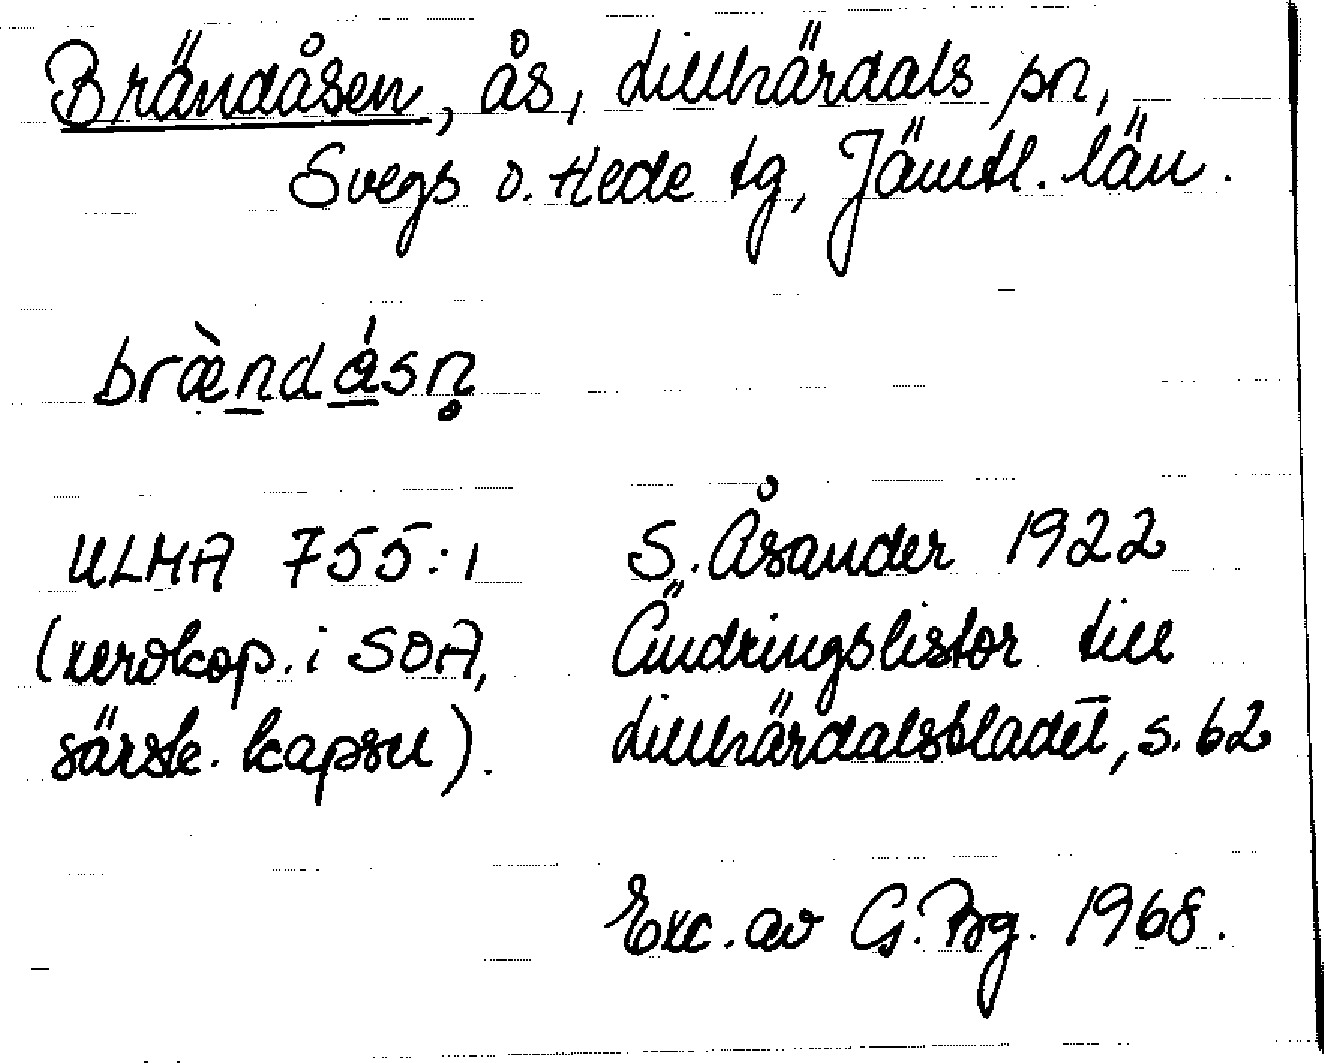 Brändåsen, ås, Lillhärdals sn,
Svegs o. Hede tg, Jämtl. län.
bræ̀ndåsn̥
ULMA 755:1
(xerokop. i SOA,
särsk. kapsel).
S. Åsander 1922
Ändringslistor till
Lillhärdalsbladet, s. 62
Exc. av G. Bg. 1968.